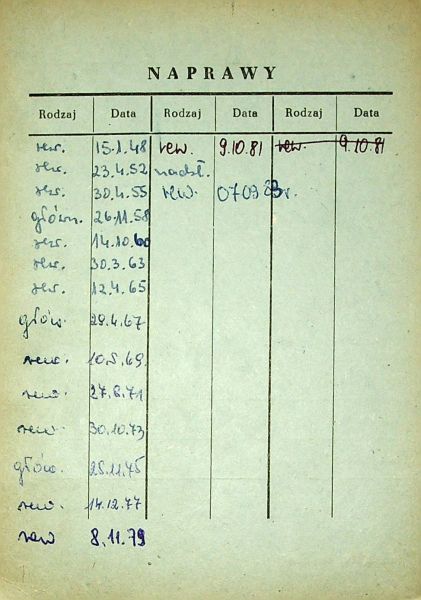 NAPRAWY
Rodzaj Data Rodzaj Data Rodzaj Data
rew. 15.1.48 rew. 9.10.81 rew. 9.10.81
rew. 23.4.52 nadzl.
rew. 30.4.55 rew. 07.09.83r.
główn. 26.11.58
rew. 14.10.60
rew. 30.3.63
rew. 12.4.65
głów. 29.4.67
rew. 10.5.69
rew. 27.6.71
rew. 30.10.73
głów. 25.11.75
rew. 14.12.77
rew 8.11.79